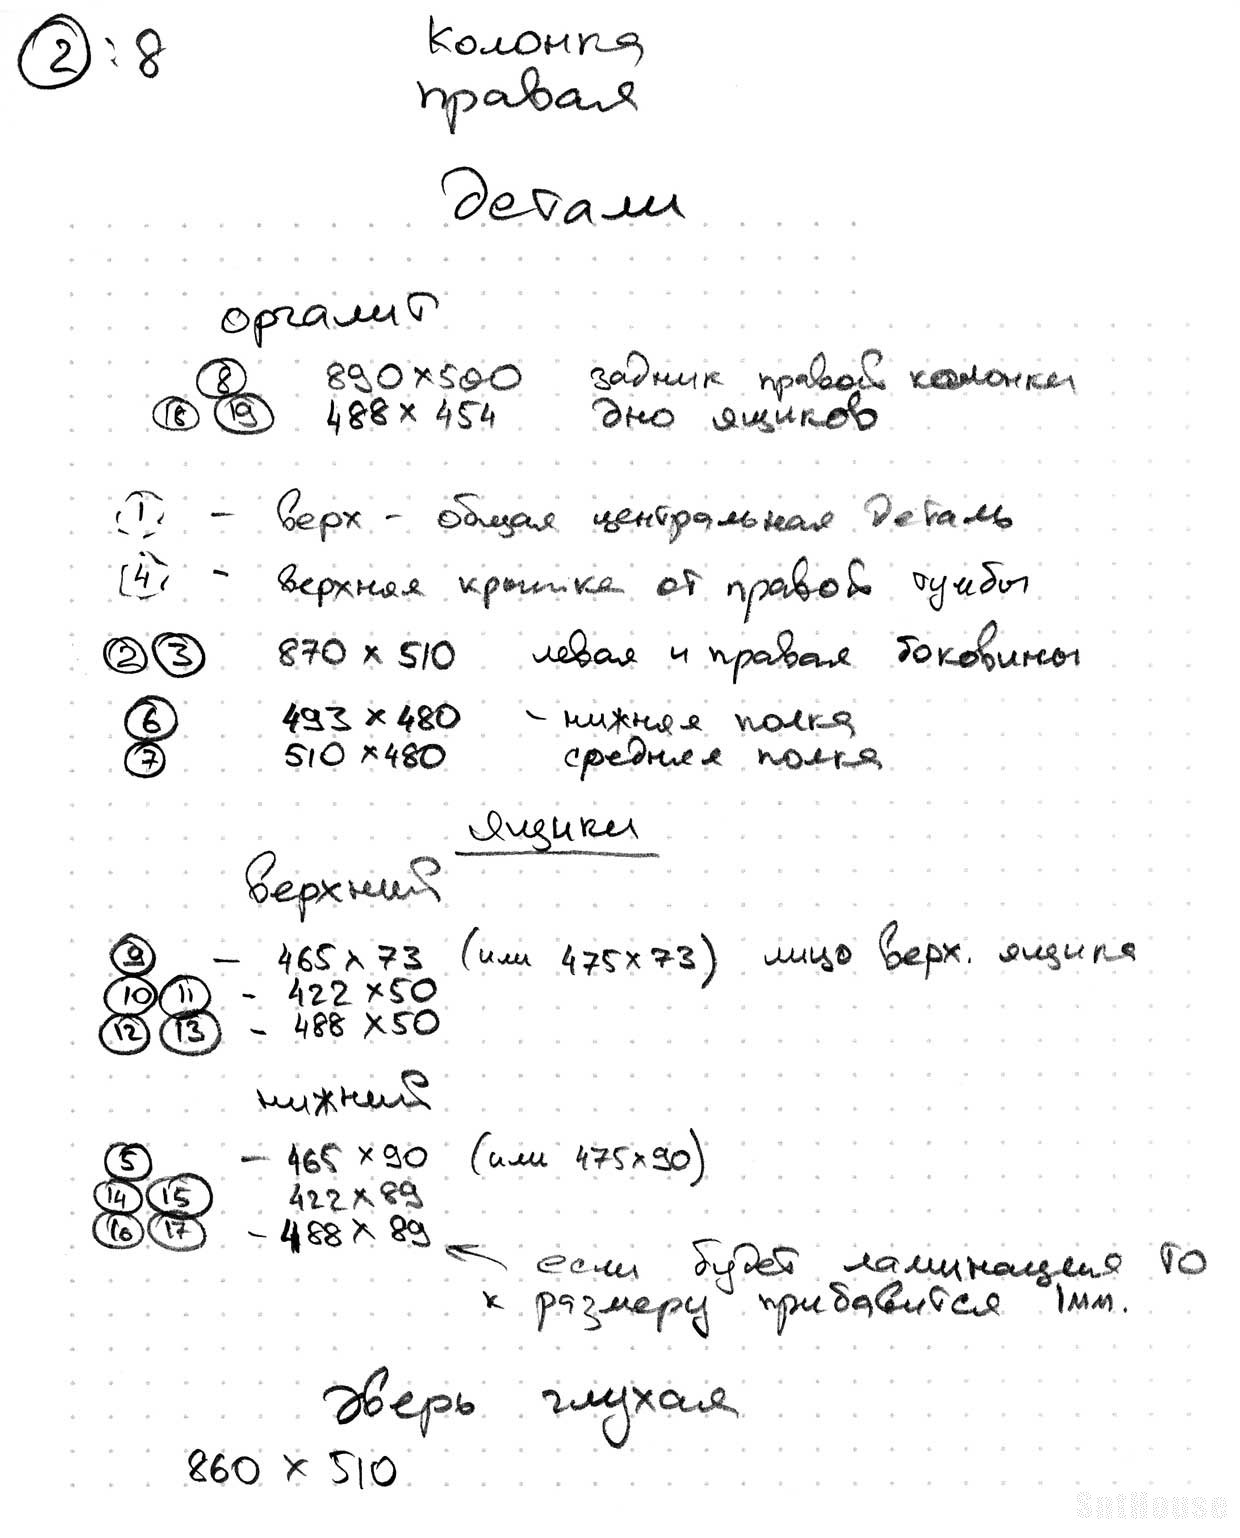 2 : 8
Колонка
правая
Детали
оргалит
8 890 x 500 задник правой колонки
18 19 488 x 454 дно ящиков
1 - верх - общая центральная деталь
4 - верхняя крышка от правой тумбы
2 3 870 x 510 левая и правая боковины
6 493 x 480 - нижняя полка
7 510 x 480 средняя полка
ящики
верхний
9 - 465 x 73 (или 475 x 73) лицо верх. ящика
10 11 - 422 x 50
12 13 - 488 x 50
нижний
5 - 465 x 90 (или 475 x 90)
14 15 422 x 89
16 17 - 488 x 89
если будет ламинация то
к размеру прибавится 1мм.
дверь глухая
860 x 510
SntHouse